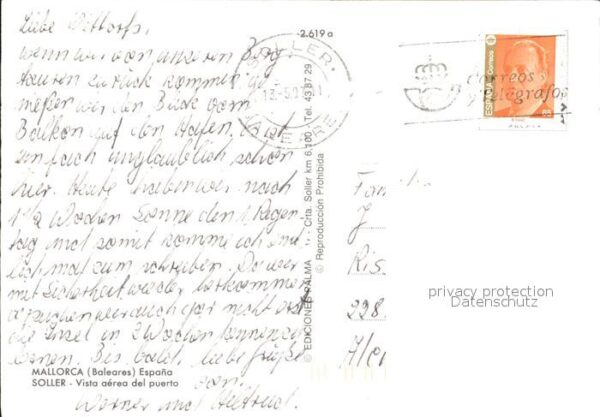 Liebe Dittorfs,
wenn wir von unseren Berg
touren zurück kommen ge
nießen wir den Blick vom
Balkon auf den Hafen. Es ist
einfach unglaublich schön
hier. Heute haben wir nach
1 1/2 Wochen Sonne den 1. Regen
tag und somit komme ich end
lich mal zum schreiben. Da wir
mit Sicherheit wieder herkommen
wir auch gar nicht erst
die Insel in 2 Wochen kennenzu
lernen. Bis bald, liebe Grüße
von
Werner und
MALLORCA (Baleares) España
SOLLER - Vista aérea del puerto
2.619 a
© EDICIONES PALMA Crta. Soller km 6,100 - Tel. 43 87 29
© Reproducción Prohibida
SOLLER
Correos
y telégrafos
ESPAÑA Correos
Fam
J
Ris
228
Alen
privacy protection
Datenschutz